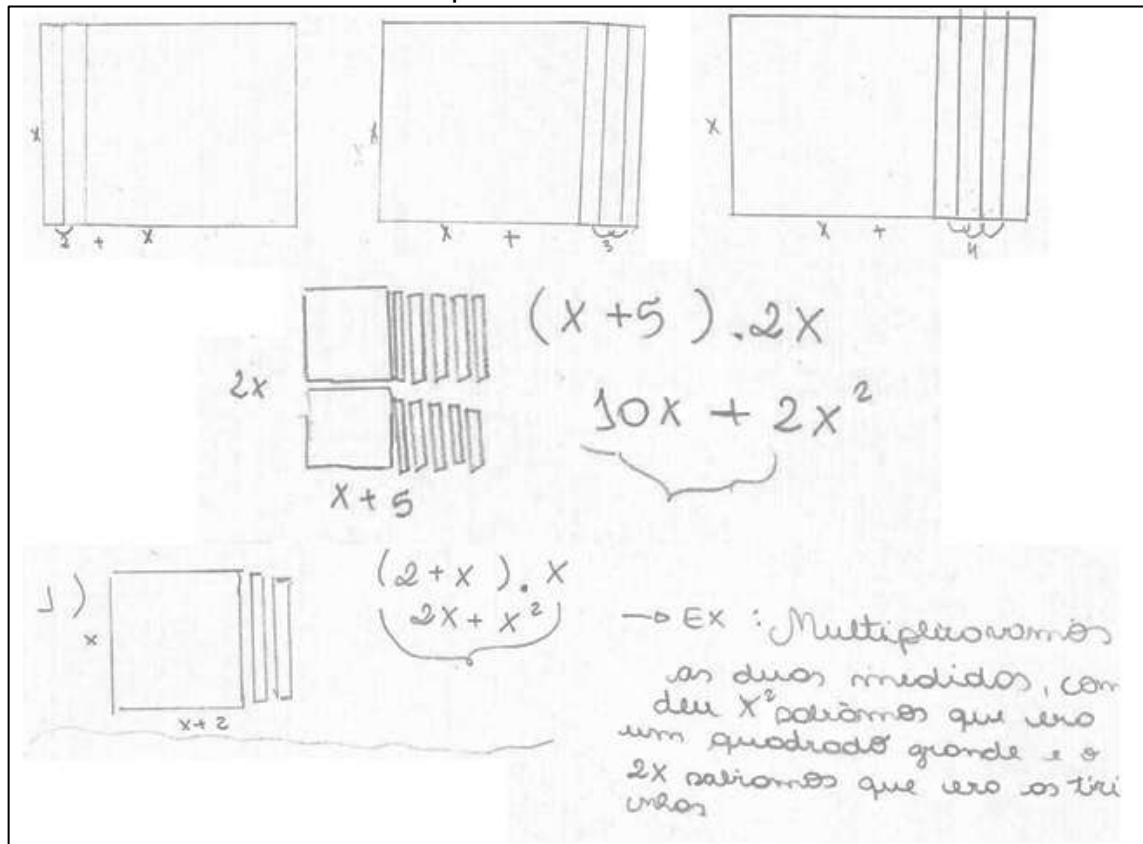 x x x
2 + x x + 3 x + 4
(x + 5 ) . 2x
2x 10x + 2x²
x + 5
1) (2 + x ) . x
x 2x + x²
x + 2
→ Ex : Multiplicavamos
as duas medidas, com
deu x² sabiamos que era
um quadrado grande e o
2x sabiamos que era as tiri
nhas